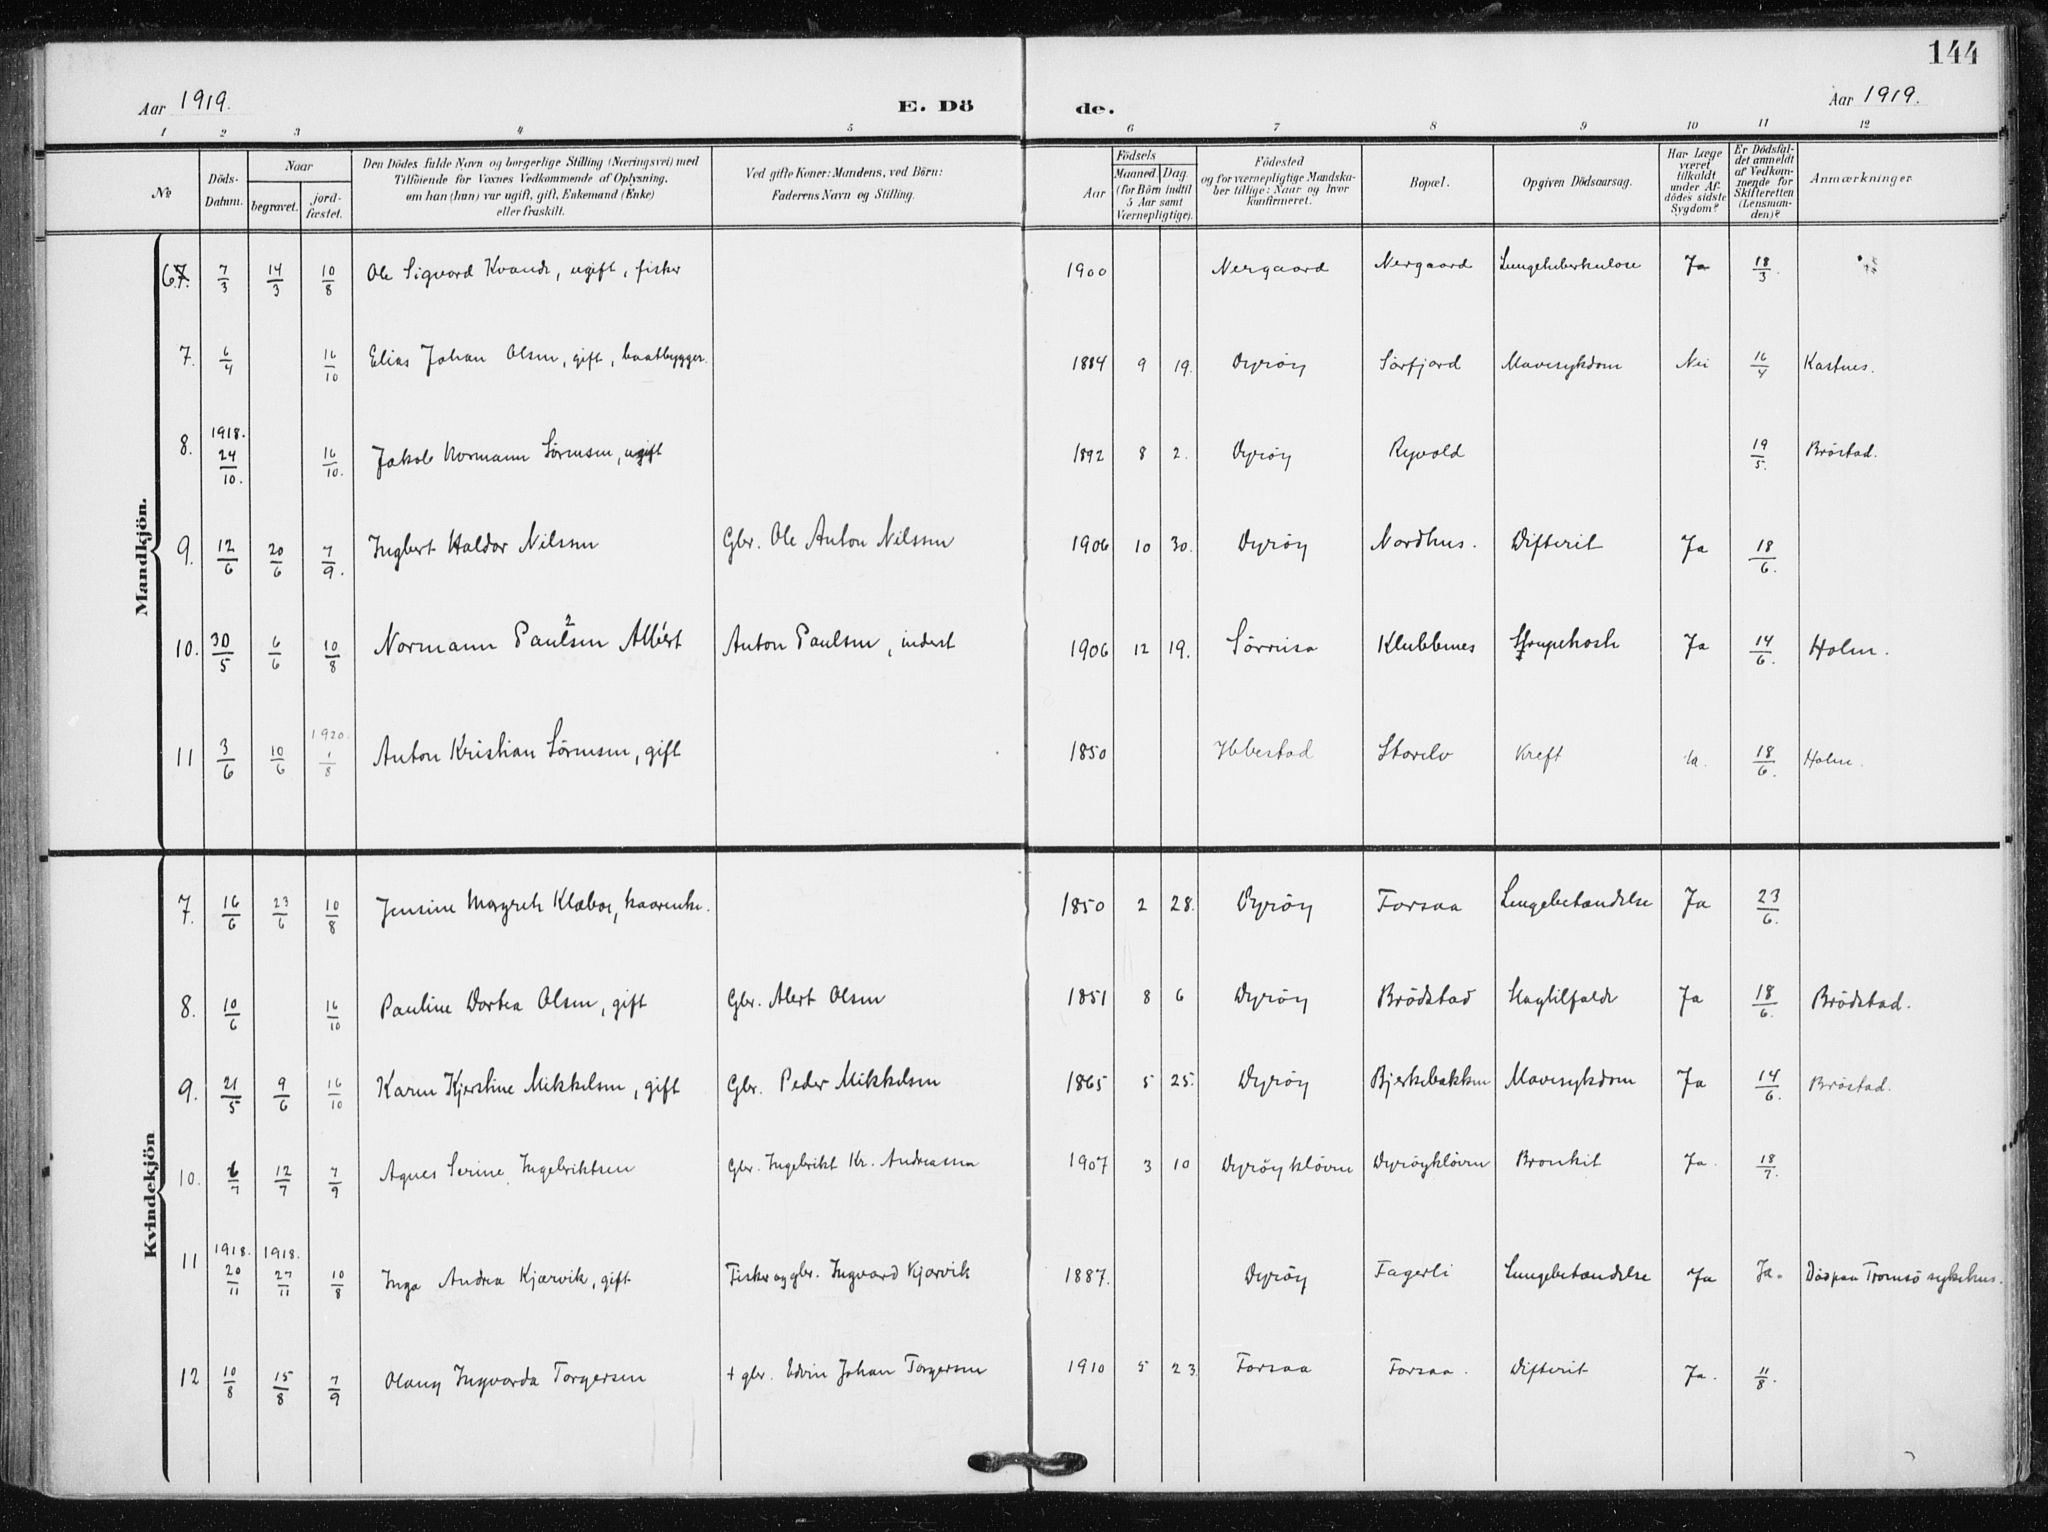 144
Aar 1919. E. Dö de. Aar 1919.
1 2 3 4 5 6 7 8 9 10 11 12
№ Döds-Datum. Naar begravet. jord-fæstet. Den Dödes fulde Navn og borgerlige Stilling (Næringsvei) med Tilföiende for Voxnes Vedkommende af Oplysning, om han (hun) var ugift, gift, Enkemand (Enke) eller fraskilt. Ved gifte Koner: Mandens, ved Börn: Faderens Navn og Stilling. Födsels Aar Maaned. Dag. (for Börn indtil 5 Aar samt Værnepligtige). Födested og for værnepligtige Mandska-ber tillige: Naar og hvor konfirmeret. Bopæl. Opgiven Dödsaarsag. Har Læge været tilkaldt under Af-dödes sidste Sygdom? Er Dödsfal-det anmeldt af Vedkom-mende for Skifteretten (Lensman-den)? Anmærkninger.
Mandkjön.
6. 7/3 14/3 10/8 Ole Sigvard Kvande, ugift, fisker 1900 Nergaard Nergaard Lungetuberkulose Ja 18/3.
7. 6/4 16/10 Elias Johan Olsen, gift, baatbygger. 1884 9 19. Dyrøy Sørfjord Mavesykdom Nei 16/4 Kastnes.
8. 1918. 24/10. 16/10. Jakob Normann Sørensen, ugift 1892 8 2. Dyrøy Ryvold 19/5. Brøstad.
9. 12/6 20/6 7/9. Ingbert Haldor Nilssen Gbr. Ole Anton Nilssen 1906 10 30. Dyrøy Nordhus. Difterit Ja 18/6.
10. 30/5 6/6 10/8 Normann Paulsen 2 Albert Anton Paulsen, inderst 1906 12 19. Sørreisa Klubbenes Strupehoste Ja 14/6. Holm.
11 3/6 10/6 1920. 1/8 Anton Kristian Sørensen, gift 1850 Ibbestad Storelv Kreft Ja. 18/6. Holm.
Kvindekjön
7. 16/6 23/6 10/8 Jensine Magreth Klæboe, kaarenke. 1850 2 28. Dyrøy Forsaa Lungebetændelse Ja 23/6.
8. 10/6 16/10 Pauline Dortea Olsen, gift Gbr. Albert Olsen 1851 8 6 Dyrøy Brødstad Slagtilfælde Ja 18/6. Brødstad.
9. 21/5 9/6 16/10 Karen Kjerstine Mikkelsen, gift Gbr. Peder Mikkelsen 1865 5 25. Dyrøy Bjerkebakken Mavesykdom Ja 14/6. Brøstad.
10. 6/7 12/7 7/9 Agnes Serine Ingebriktsen Gbr. Ingebrikt Kr. Andreassen 1907 3 10 Dyrøykløven Dyrøykløven Bronkit Ja. 18/7.
11 1918. 20/11 1918. 27/11 10/8 Inga Andrea Kjærvik, gift Fisker og gbr. Ingvard Kjærvik 1887. Dyrøy Fagerli Lungebetændelse Ja Ja. Død paa Tromsø sykehus.
12 10/8 15/8 7/9 Olaug Ingvarda Torgersen + gbr. Edvin Johan Torgersen 1910 5 23. Forsaa Forsaa. Difterit Ja. 11/8.